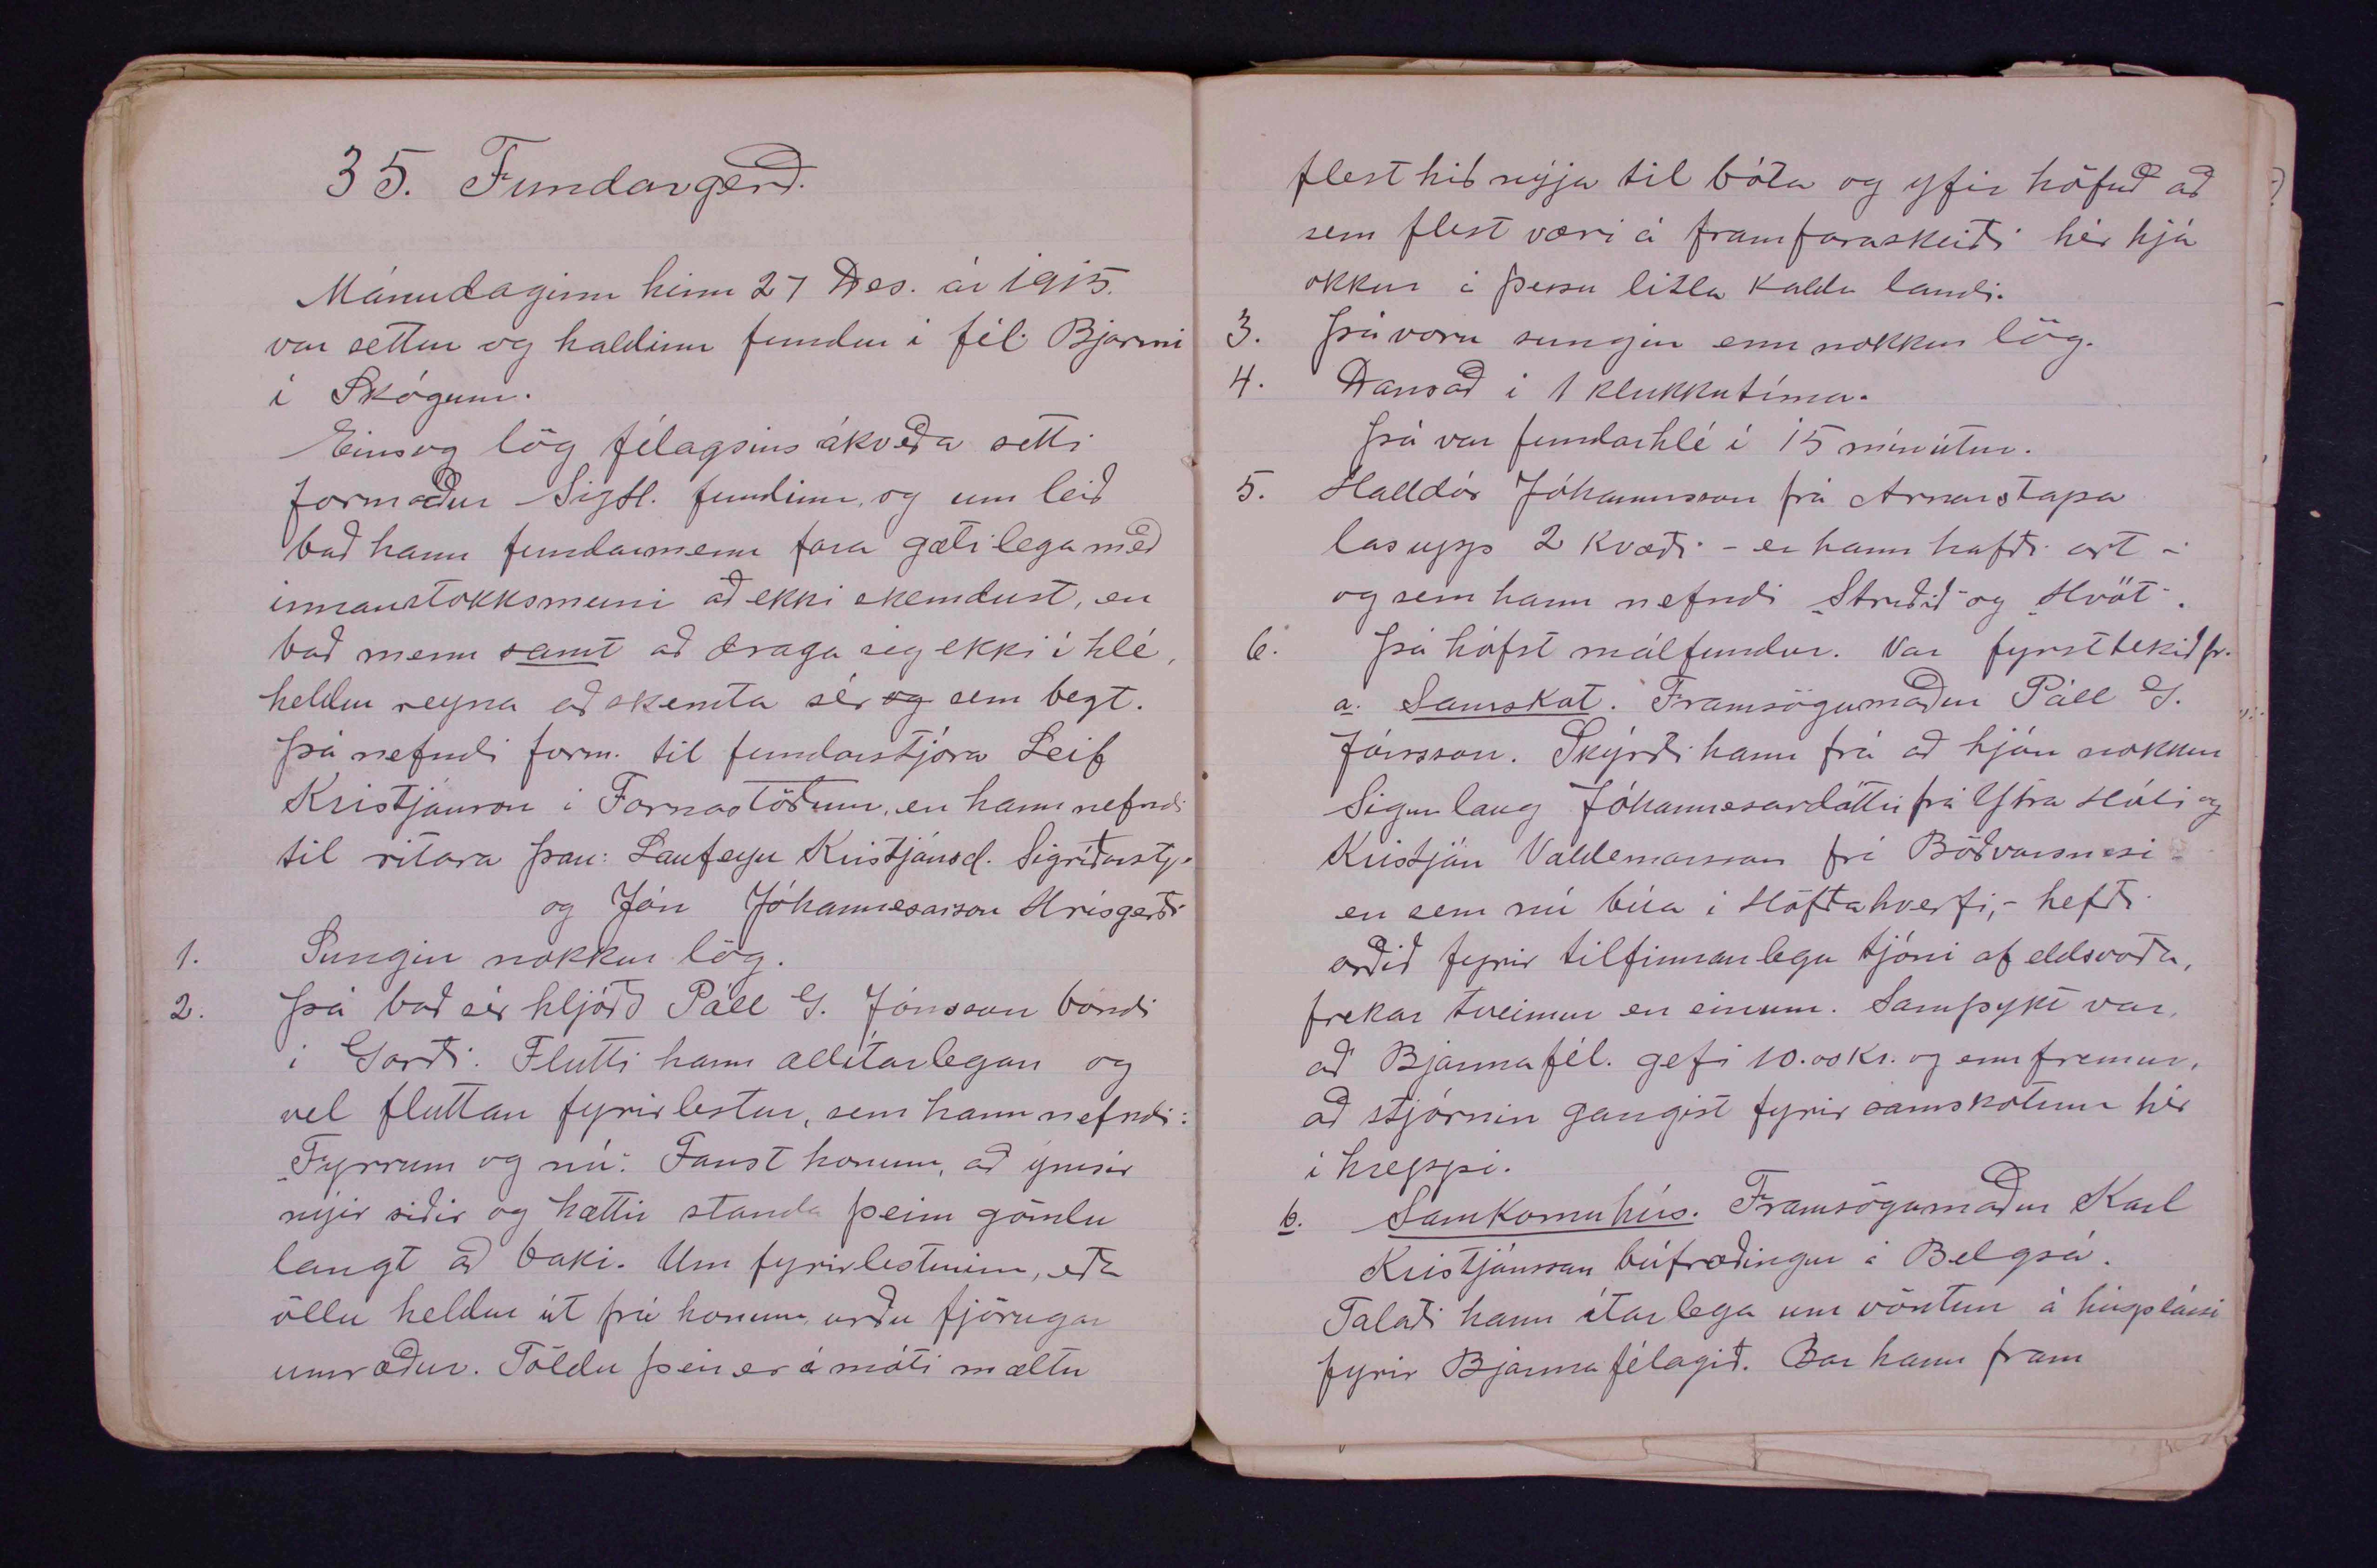 35. Fundargerð.
Mánudaginn hinn 27 Des. ár 1915.
var settur og haldinn fundur í fél. Bjarmi
í Skógum.
Eins og lög félagsins ákveða setti
formaður Sigtl. fundinn, og um leið
bað hann fundarmenn fara gætilega með
innanstokksmuni að ekki skemdust, en
bað menn samt að draga sig ekki í hlé,
heldur reyna að skemta sér og sem begt.
Þá nefndi form. til fundarstjóra Leif
Kristjánson í Fornastöðum, en hann nefndi
til ritara þau: Laufeyu Kristjánsd. Sigríðarst.
og Jón Jóhannesarson Hrísgerði
1. Sungin nokkur lög.
2. Þá bað sér hljóðs Páll G. Jónsson bóndi
í Garði. Flutti hann allítarlegan og
vel fluttan fyrirlestur, sem hann nefndi:
„Fyrrum og nú". Fanst honum, að ýmsir
nýir siðir og hættir standa þeim gömlu
langt að baki. Um fyrirlesturinn, eða
öllu heldur út frá honum, urðu fjörugar
umræður. Töldu þeir er á móti mæltu
flest hið nýja til bóta og yfir höfuð að
sem flest væri á framfaraskeiði hér hjá
okkur í þessu litla kalda landi.
3. Þá voru sungin enn nokkur lög.
4. Dansað í 1 klukkutíma.
Þá var fundarhlé í 15 mínútur.
5. Halldór Jóhannsson frá Arnarstapa
las upp 2 kvæði - er hann hafði ort -
og sem hann nefndi „Stríðið" og „Hvöt".
6. Þá hófst málfundur. Var fyrst tekið fr.
a. Samskot. Framsögumaður Páll G.
Jónsson. Skýrði hann frá að hjón nokkur
Sigurlaug Jóhannesardóttir frá Ytra Hóli og
Kristján Valdemarsson frá Böðvarsnesi -
en sem nú búa í Höfðahverfi, - hefði
orðið fyrir tilfinnanlegu tjóni af eldsvoða,
frekar tveimur en einum. Samþykt var,
að Bjarmafél. gefi 10.00 kr. og enn fremur,
að stjórnin gangist fyrir samskotum hér
í hreppi.
b. Samkomuhús. Framsögumaður Karl
Kristjánsson búfræðingur á Belgsá.
Talaði hann ítarlega um vöntun á húsplássi
fyrir Bjarmafélagið. Bar hann fram